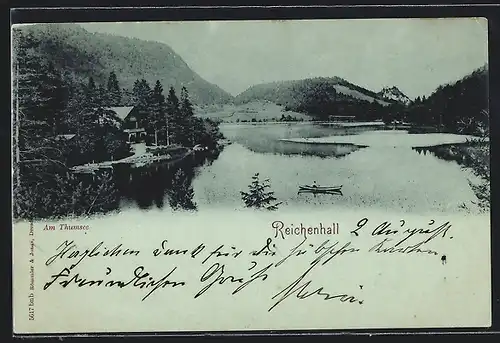 Am Thumsee.
Reichenhall 2 August
Herzlichen Dank für die hübschen Karten
Freundlichen Gruss
5617 bmb Römmler & Jonas, Dresden